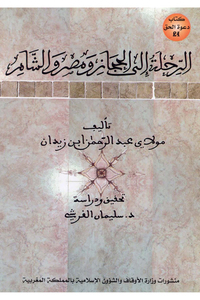 كتاب
دعوة الحق
24
الرحلة إلى الحجاز ومصر والشام
تأليف
مولاي عبد الرحمن ابن زيدان
تحقيق ودراسة
د. سليمان القرشي
منشورات وزارة الأوقاف والشؤون الإسلامية بالمملكة المغربية